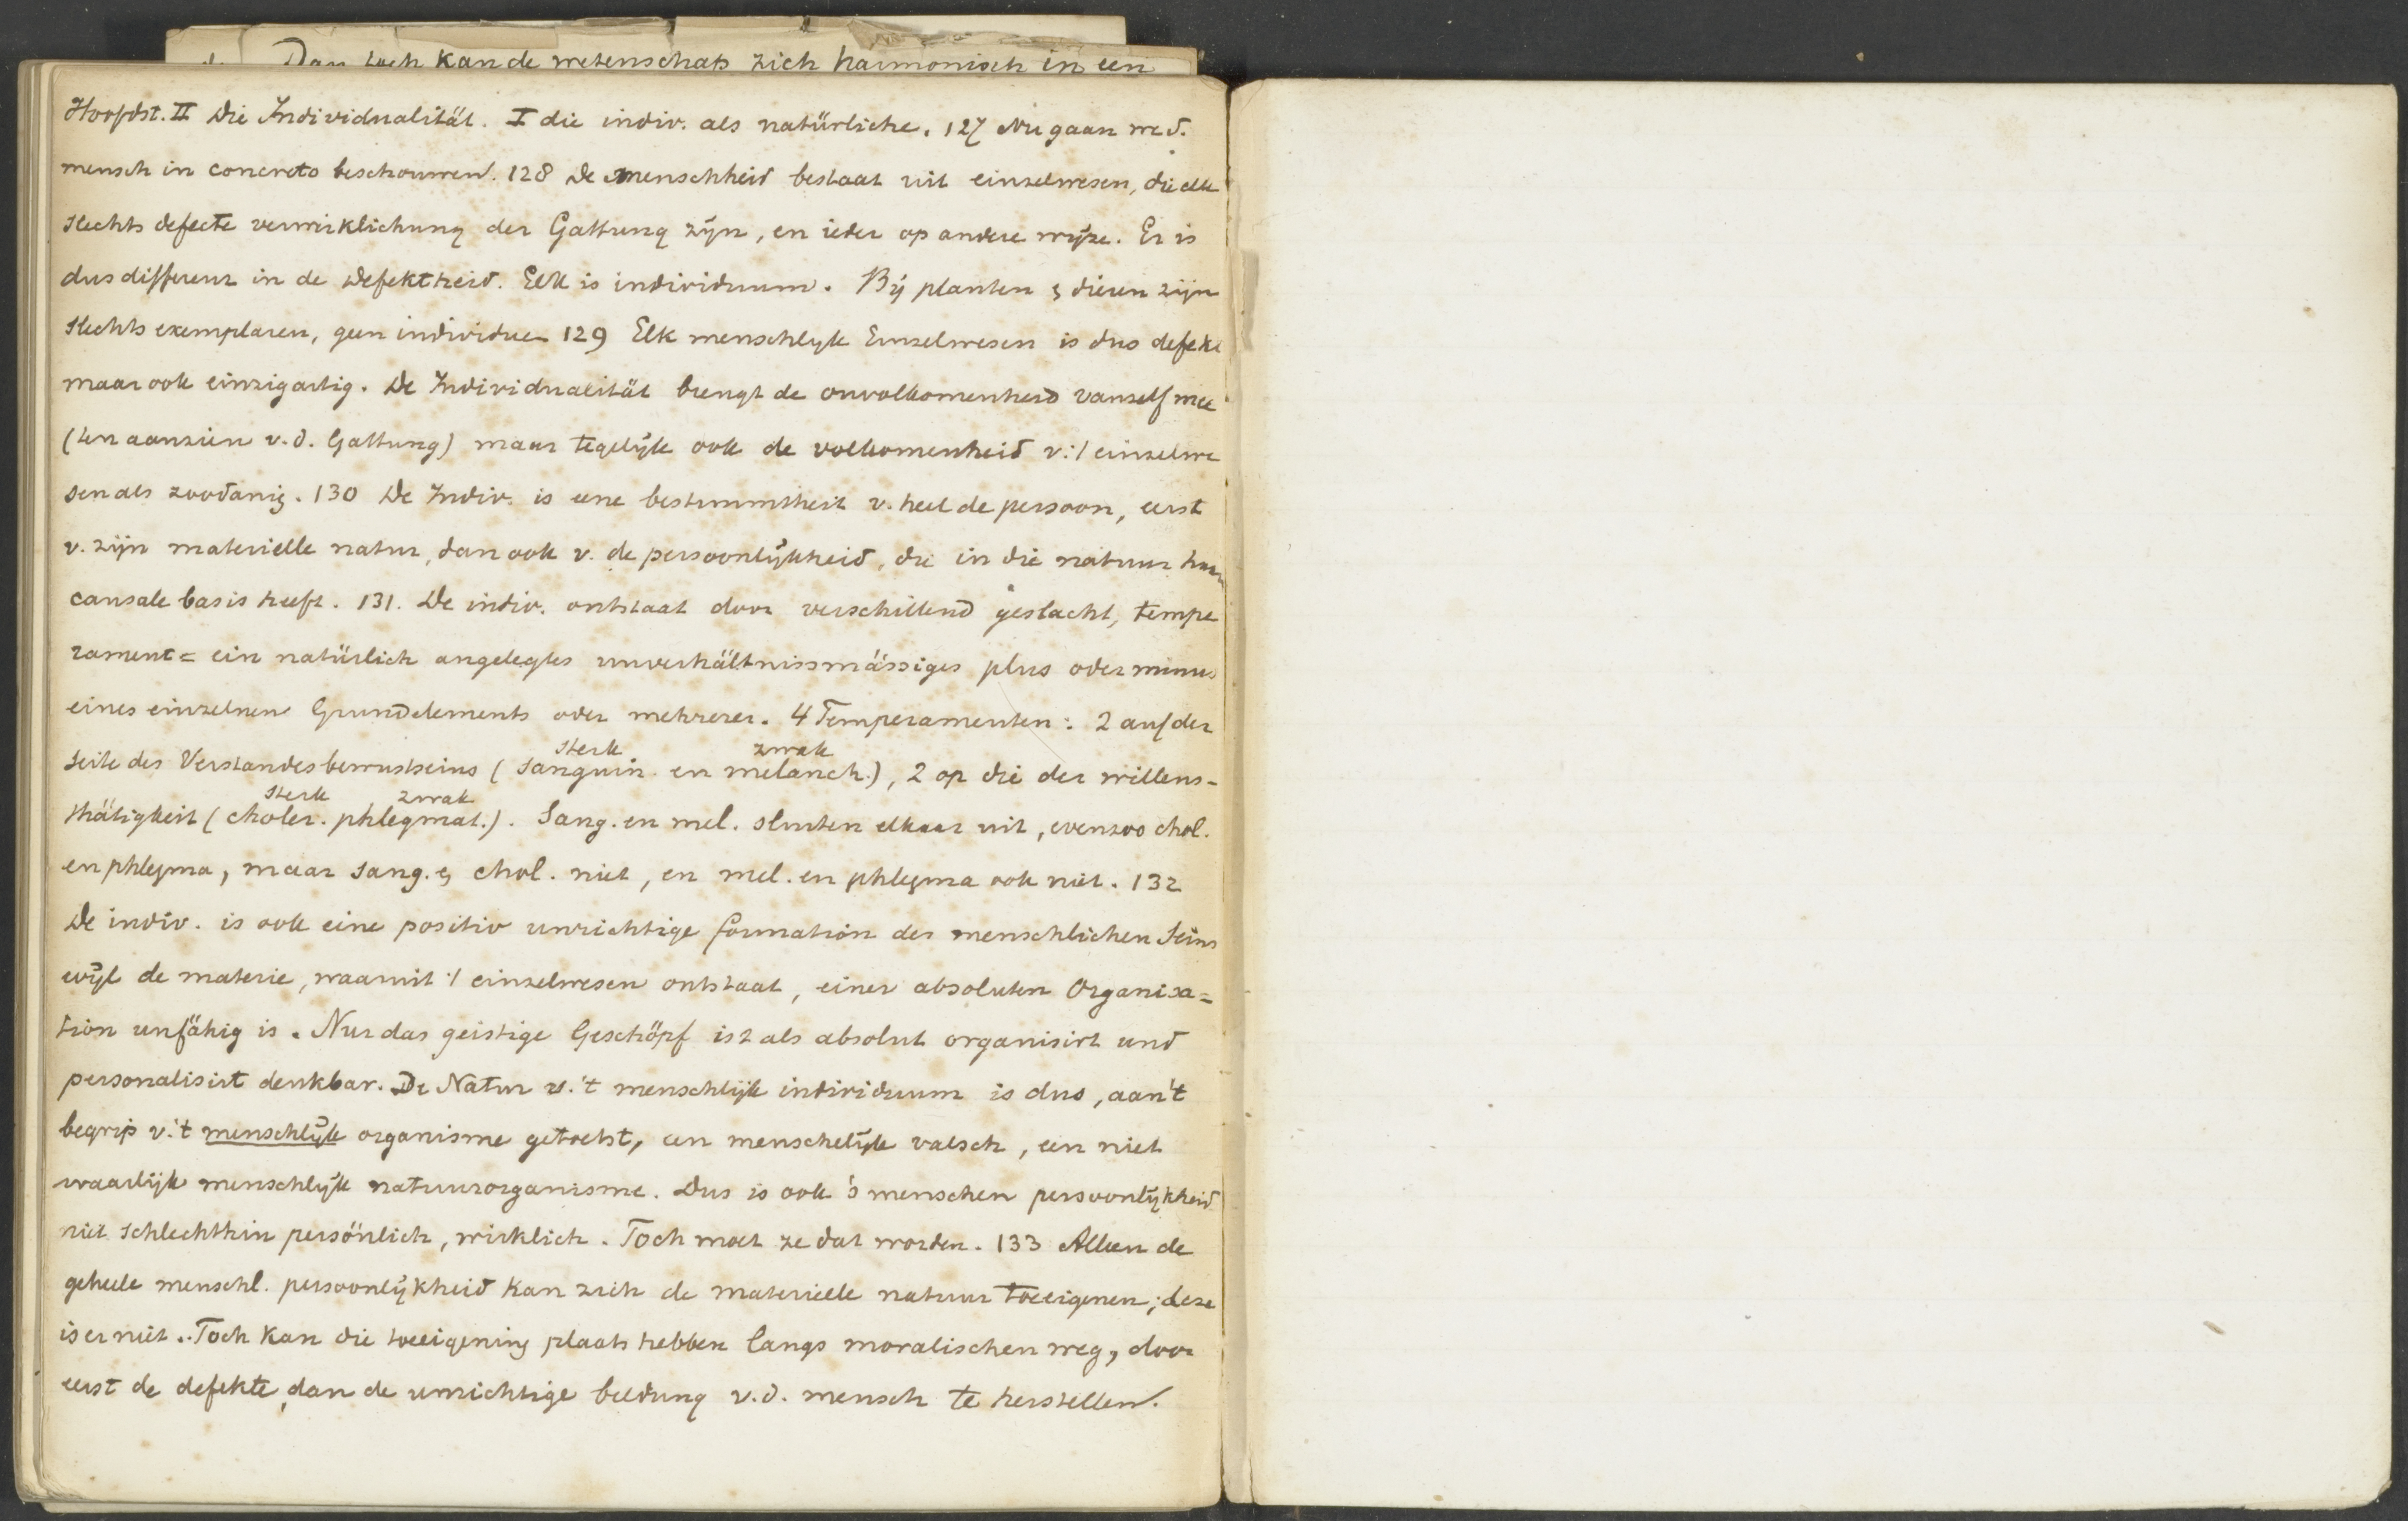 Dan toch kan de wetenschap zich harmonisch in een
Hoofdst. II Die Individualität. I die indiv. als natürliche. 127 Nu gaan we d.
mensch in concreto beschouwen. 128 De menschheid bestaat uit einzelwesen, die elk
slechts defecte verwirklichung der Gattung zijn, en ieder op andere wijze. Er is
dus differenz in de defektheid. Elk is individuum. Bij planten & dieren zijn
slechts exemplaren, geen individuen 129 Elk menschlijk Einzelwesen is dus defekt
maar ook einzigartig. De Individualität brengt de onvolkomenheid vanzelf mee
(ten aanzien v.d. Gattung) maar tegelijk ook de volkomenheid v.'t einzelwe
sen als zoodanig. 130 De Indiv. is eene bestimmtheit v. heel de persoon, eerst
v. zijn materielle natur, dan ook v. de persoonlijkheid, die in die natuur haar
causale basis heeft. 131. De indiv. ontstaat door verschillend geslacht, tempe
rament = ein natürlich angelegtes unverhältnissmässiges plus oder minus
eines einzelnen Grundelements oder mehrerer. 4 Temperamenten: 2 auf der
sterk zwak
Seite des Verstandesbewustseins (sanguin. en melanch.), 2 op die der willens-
sterk zwak
thätigkeit (choler. phlegmat.). Sang. en mel. sluiten elkaar uit, evenzoo chol.
en phlegma, maar sang. & chol. niet, en mel. en phlegma ook niet. 132
De indiv. is ook eine positiv unrichtige formation des menschlichen Seins
wijl de materie, waaruit 't einzelwesen ontstaat, einer absoluten Organisa=
tion unfähig is. Nur das geistige Geschöpf ist als absolut organisirt und
personalisirt denkbar. De Natur v.'t menschlijk individuum is dus, aan 't
begrip v.'t menschlijk organisme getoetst, een menschelijk valsch, een niet
waarlijk menschlijk natuurorganisme. Dus is ook 's menschen persoonlijkheid
niet schlechthin persönlich, wirklich. Toch moet ze dat worden. 133 Alleen de
geheele menschl. persoonlijkheid kan zich de materieele natuur toeeigenen; deze
is er niet. Toch kan die toeeigening plaats hebben langs moralischen weg, door
eerst de defekte, dan de unrichtige bildung v.d. mensch te herstellen.